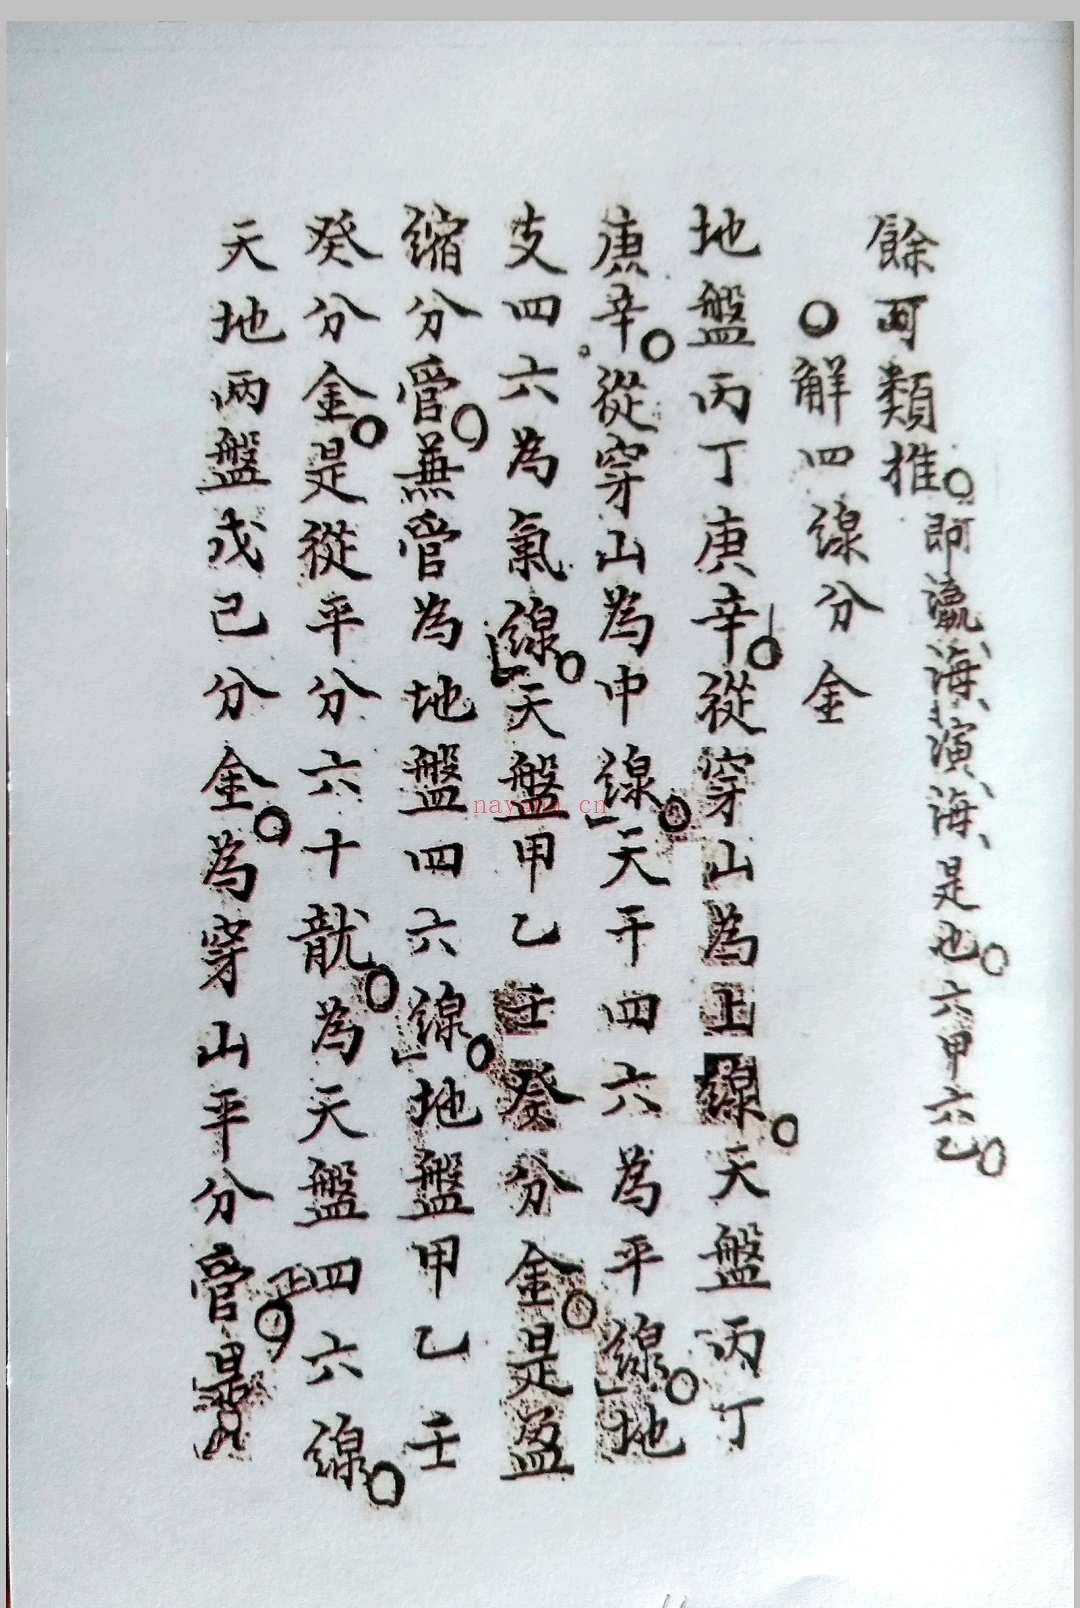 餘可類推。即瀛海、演海、是也。六甲六乙。
○解四線分金
地盤丙丁庚辛。從穿山為上線。天盤丙丁
庚辛。從穿山為中線。天干四六為平線。地
支四六為氣線。天盤甲乙壬癸分金。是盈
縮分管。兼管為地盤四六線。地盤甲乙壬
癸分金。是從平分六十龍。為天盤四六線。
天地兩盤戊己分金。為穿山平分管。是
正
nayona.cn